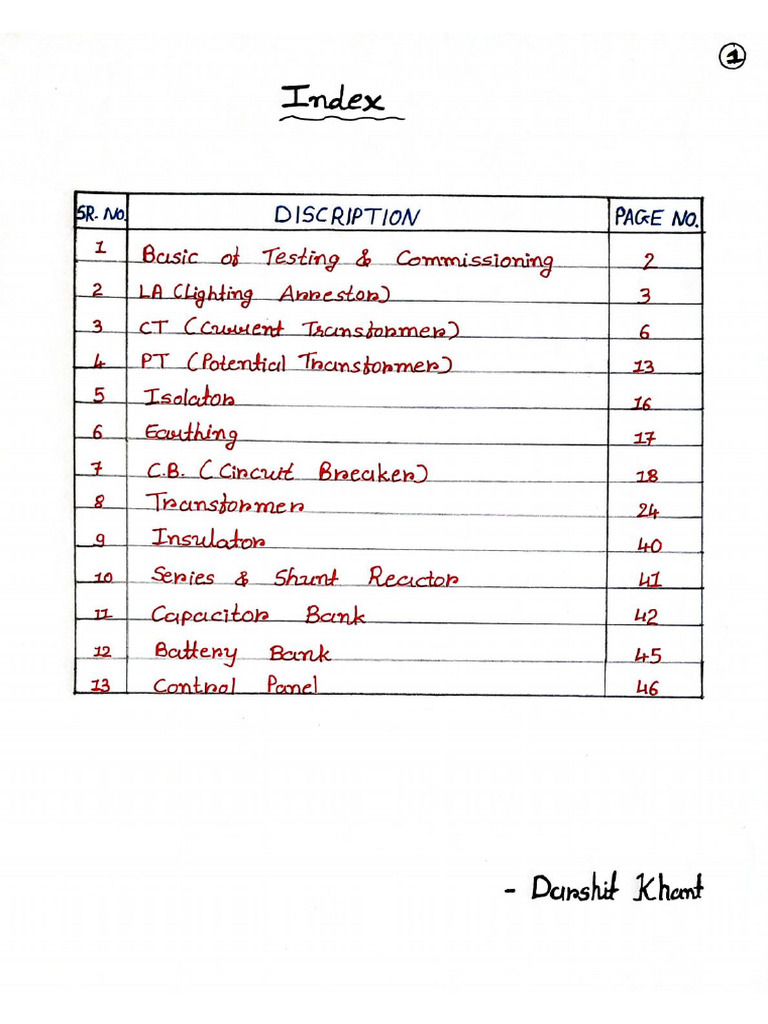 1
Index
SR. NO. DISCRIPTION PAGE NO.
1 Basic of Testing & Commissioning 2
2 LA (Lighting Arrestor) 3
3 CT (Current Transformer) 6
4 PT (Potential Transformer) 13
5 Isolator 16
6 Earthing 17
7 C.B. (Circuit Breaker) 18
8 Transformer 24
9 Insulator 40
10 Series & Shunt Reactor 41
11 Capacitor Bank 42
12 Battery Bank 45
13 Control Panel 46
- Darshit Khant